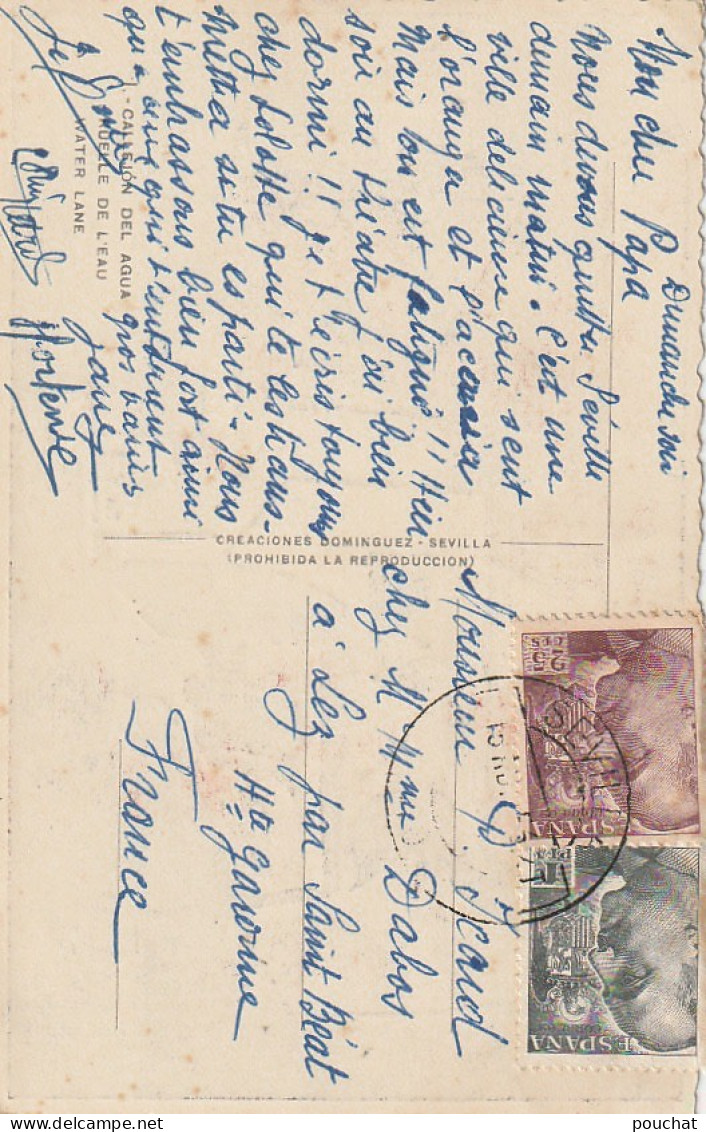 Dimanche soir
Mon cher Papa
Nous devons quitter Séville
demain matin. C'est une
ville délicieuse qui sent
l'oranger et l'acacia
Mais on est fatigué !! Hier
soir au théâtre j'ai bien
dormi !! Je t'écris toujours
chez Lolotte qui te les trans-
mettra si tu es parti. Nous
t'embrassons bien fort ainsi
que ceux qui t'entourent
gros baisers
Jane
Hortense
1 - CALLEJÓN DEL AGUA
RUELLE DE L'EAU
WATER LANE
CREACIONES DOMINGUEZ - SEVILLA
(PROHIBIDA LA REPRODUCCION)
Monsieur P. Icard
chez Mr Mme Dabos
à Lez par Saint Béat
Hte Garonne
France
SEVILLA
25 CTS
ESPAÑA
1 PTA
ESPAÑA
pouchat